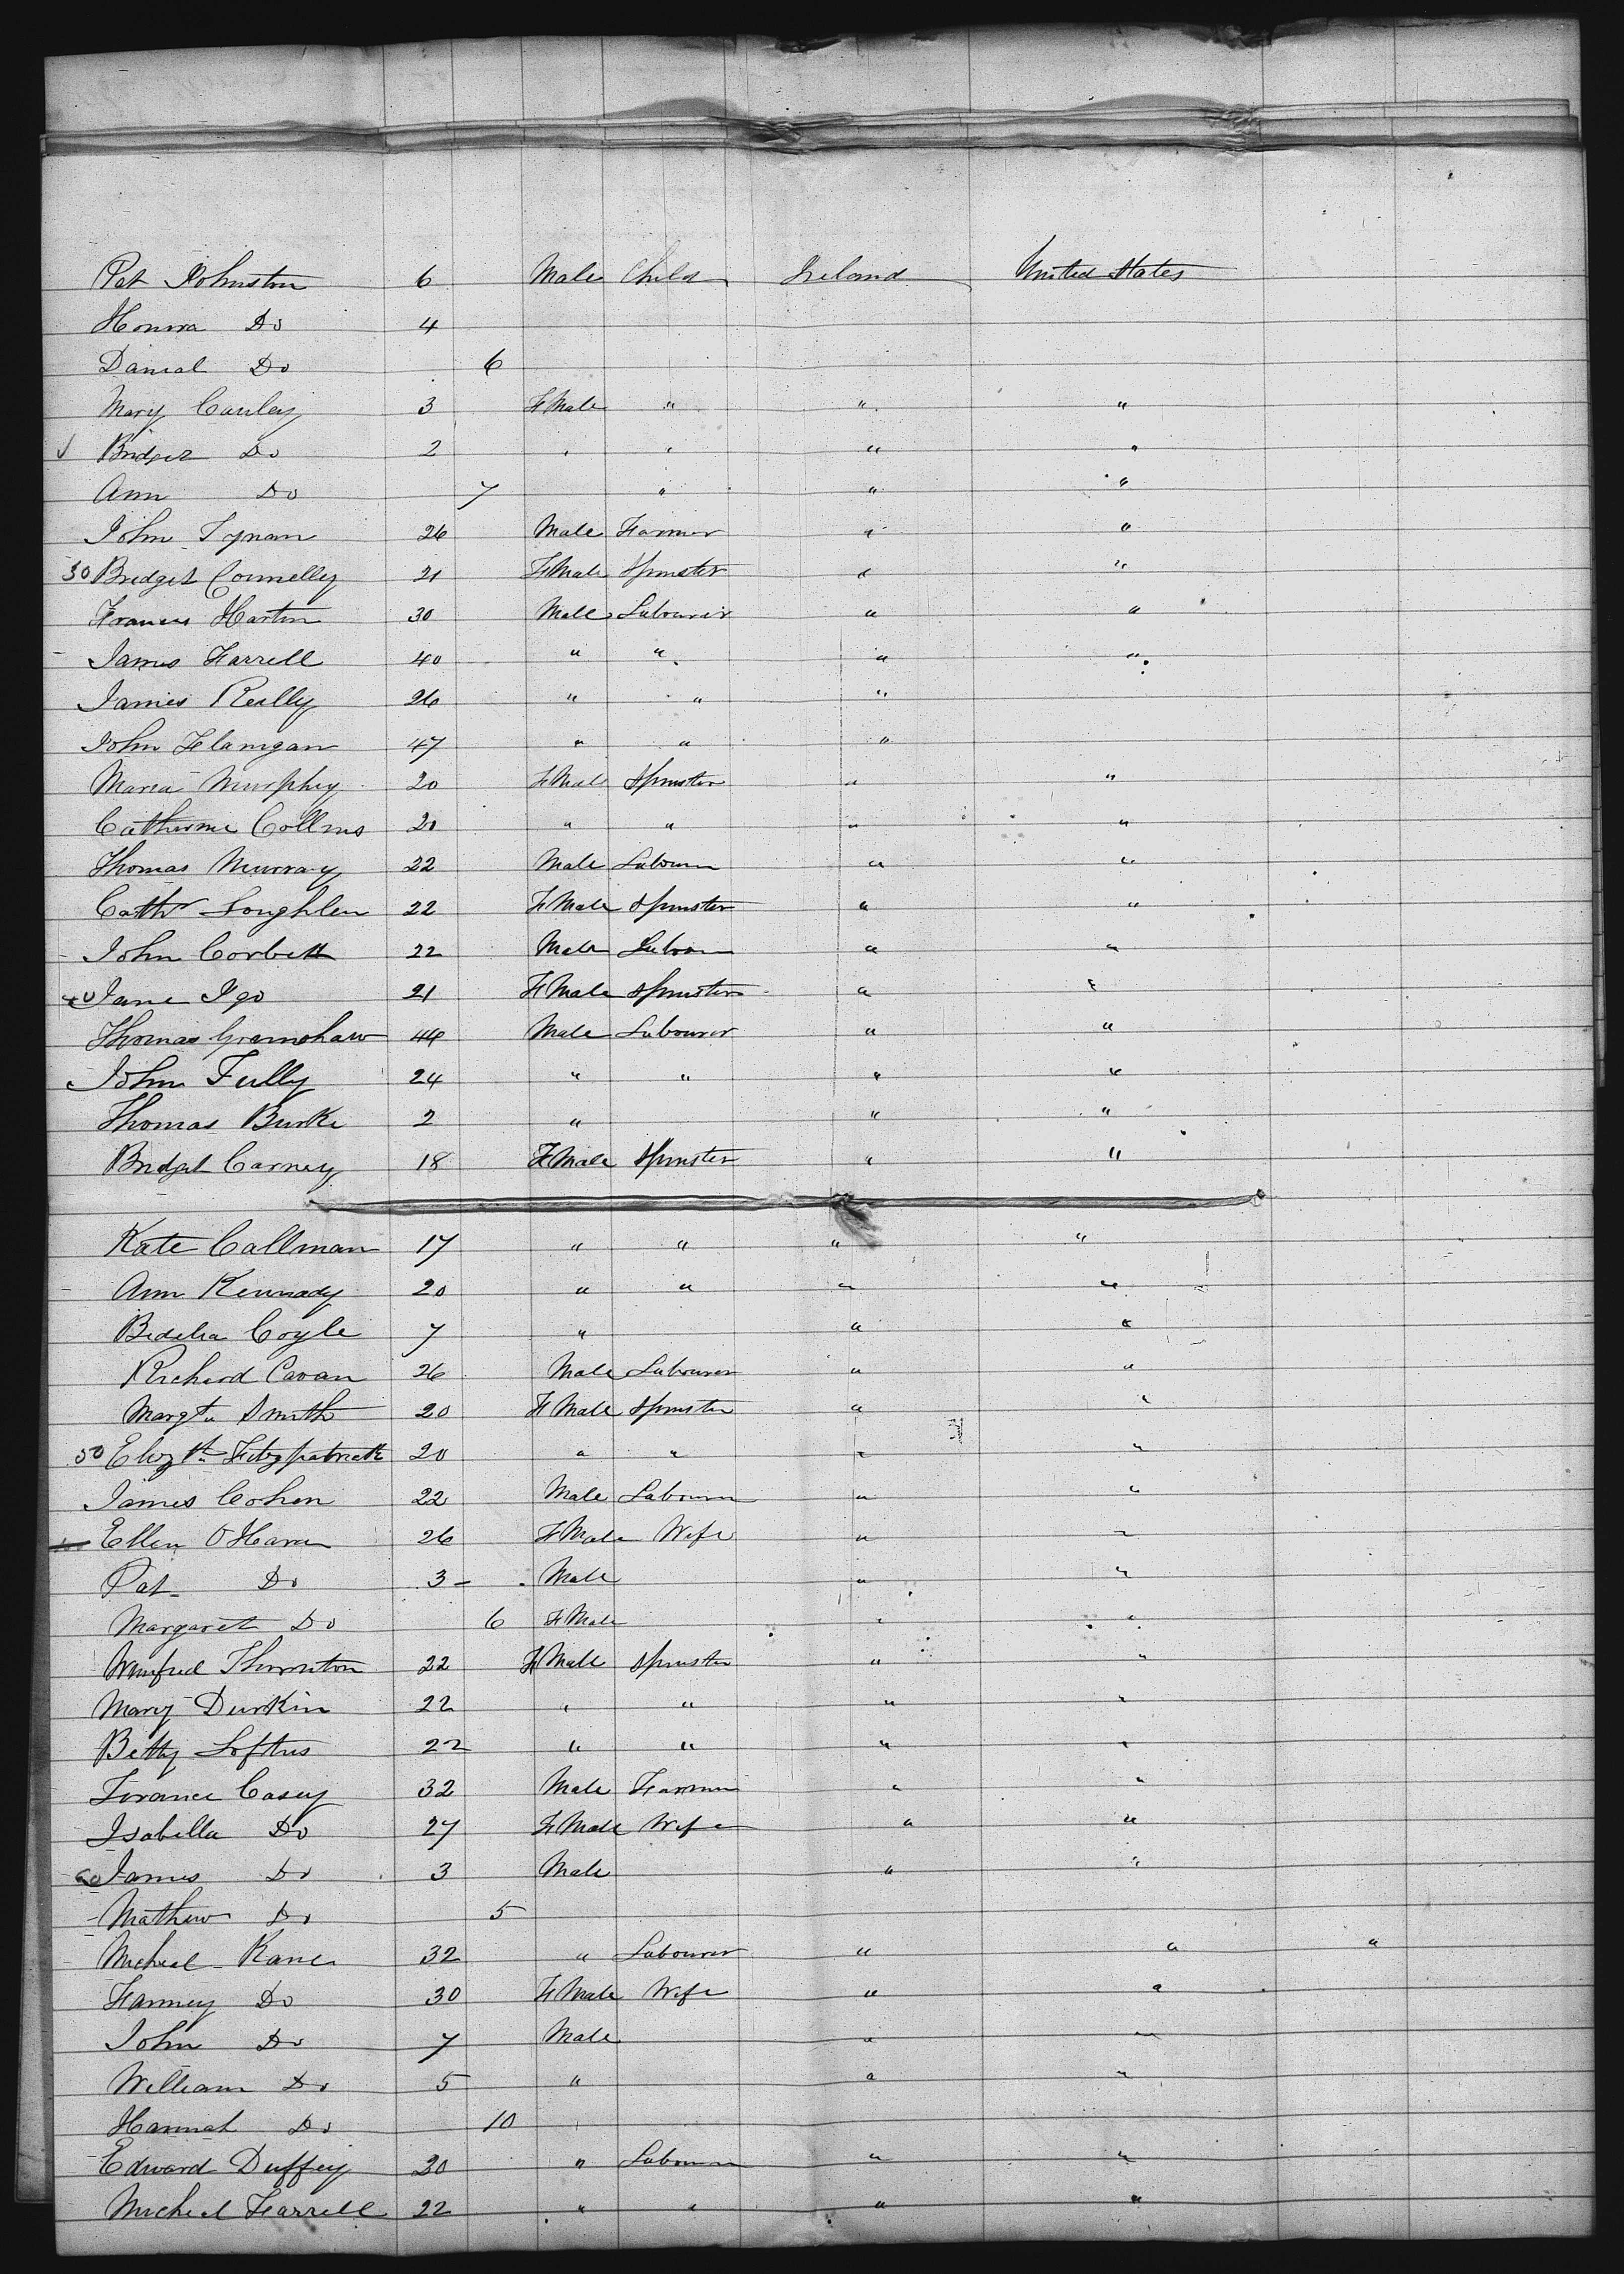 Pat Johnston 6 Male Child Ireland United States
Honora Do 4
Danial Do 6
Mary Cauley 3 F Male " " "
√ Bridget Do 2 " " " "
Ann Do 7 " " "
John Tynan 26 Male Farmer " "
30 Bridget Connelley 21 F Male Spinster " "
Francis Hartin 30 Male Labourer " "
James Farrell 40 " " " "
James Reilly 26 " " "
John Flanigan 47 " " "
Maria Murphey 20 F Male Spinster " "
Catherine Collins 20 " " " "
Thomas Murray 22 Male Labourer " "
Cathr Loughlen 22 F Male Spinster " "
John Corbett 22 Male Labour " "
40 Jane Igo 21 F Male Spinster " "
Thomas Gremshaw 44 Male Labourer " "
John Tully 24 " " " "
Thomas Burke 2 " " "
Bridget Carney 18 F Male Spinster " "
Kate Callman 17 " " " "
Ann Kennady 20 " " " "
Bedelia Coyle 7 " " "
Richard Cavan 26 Male Labourer " "
Margt Smith 20 F Male Spinster " "
50 Elizth Fitzpatrick 20 " " " "
James Cohen 22 Male Labourer " "
Ellen O Hara 26 F Male Wife " "
Pat Do 3 - Male " "
Margaret Do 6 F Male " "
Winifred Thornton 22 F Male Spinster " "
Mary Durkin 22 " " " "
Betty Loftus 22 " " " "
Terance Casey 32 Male Farmer " "
Isabella Do 27 F Male Wife " "
60 James Do 3 Male " "
Mathew Do 5
Micheal Kane 32 " Labourer " " "
Fanney Do 30 F Male Wife " "
John Do 7 Male " "
William Do 5 " " "
Hannah Do 10
Edward Duffey 20 " Labourer " "
Micheal Farrell 22 " " " "